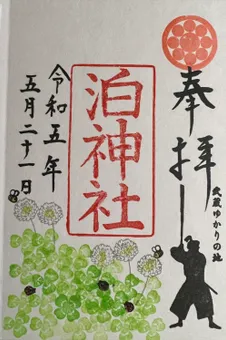 奉拝
武蔵ゆかりの地
泊神社
令和五年
五月二十一日